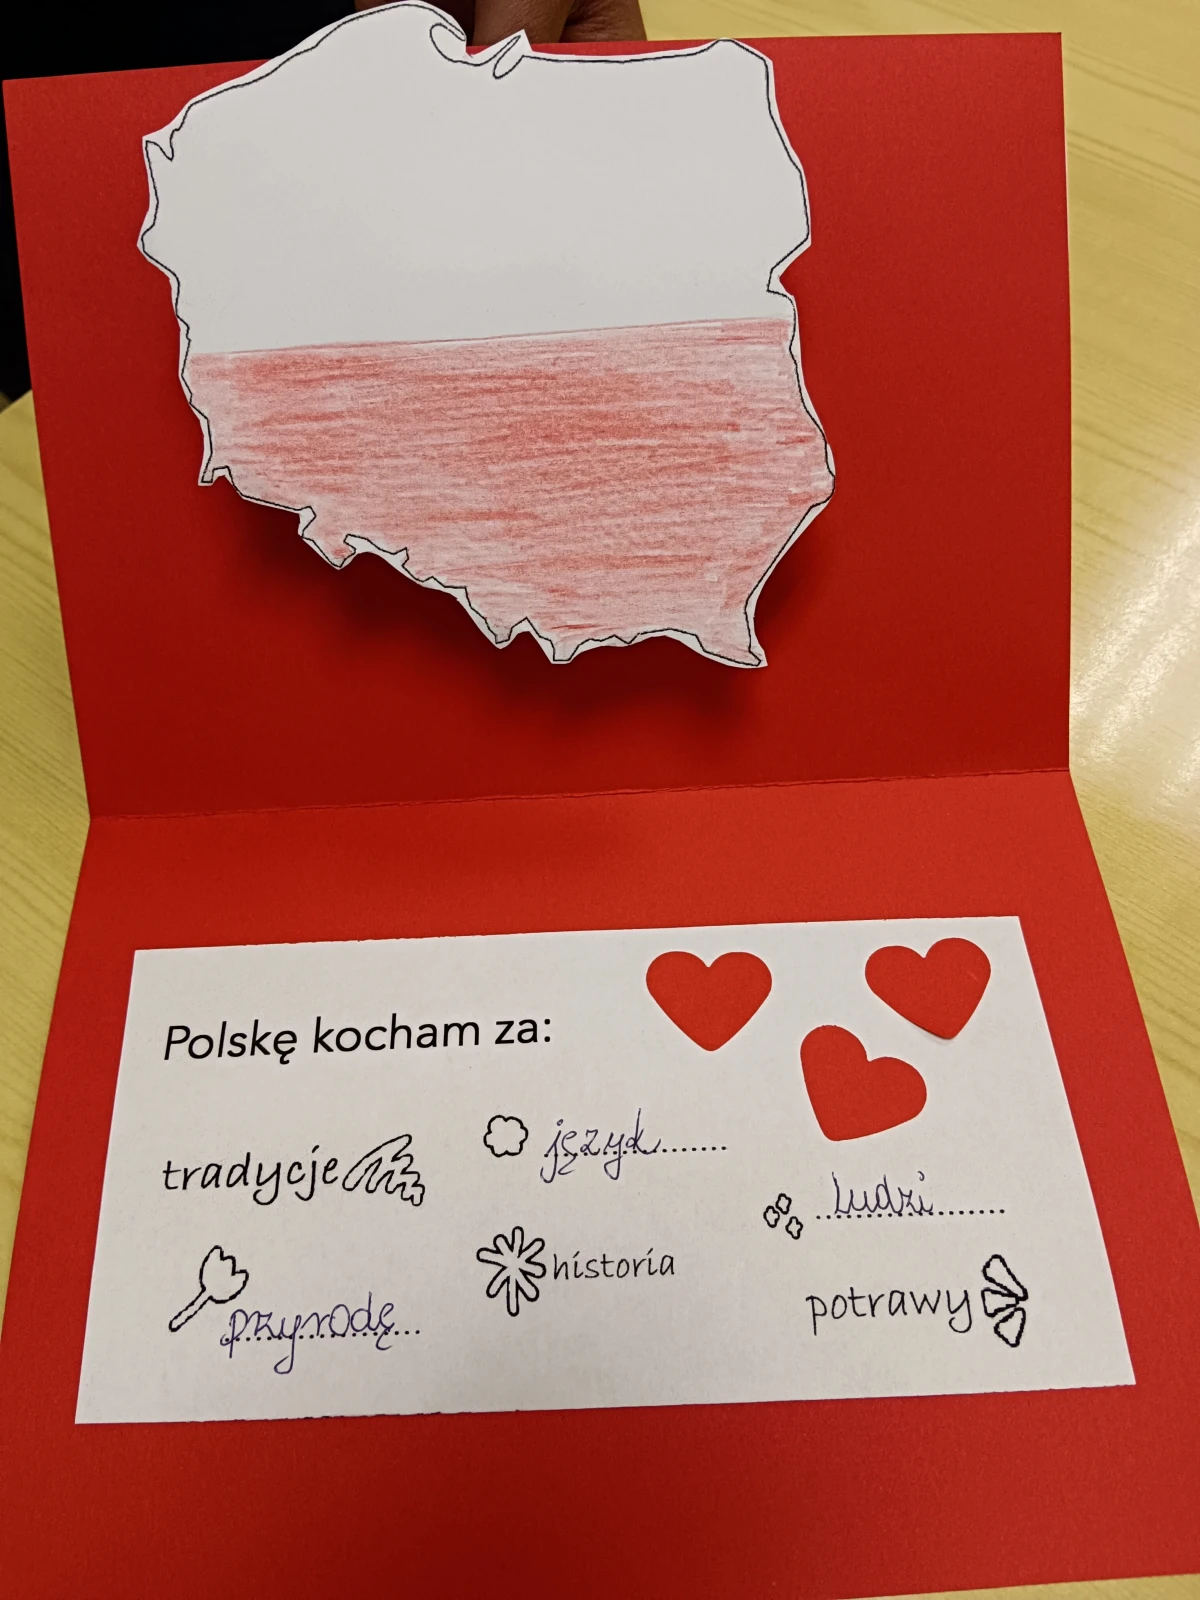 Polskę kocham za:
tradycje
język.......
ludzi.......
przyrodę...
historia
potrawy